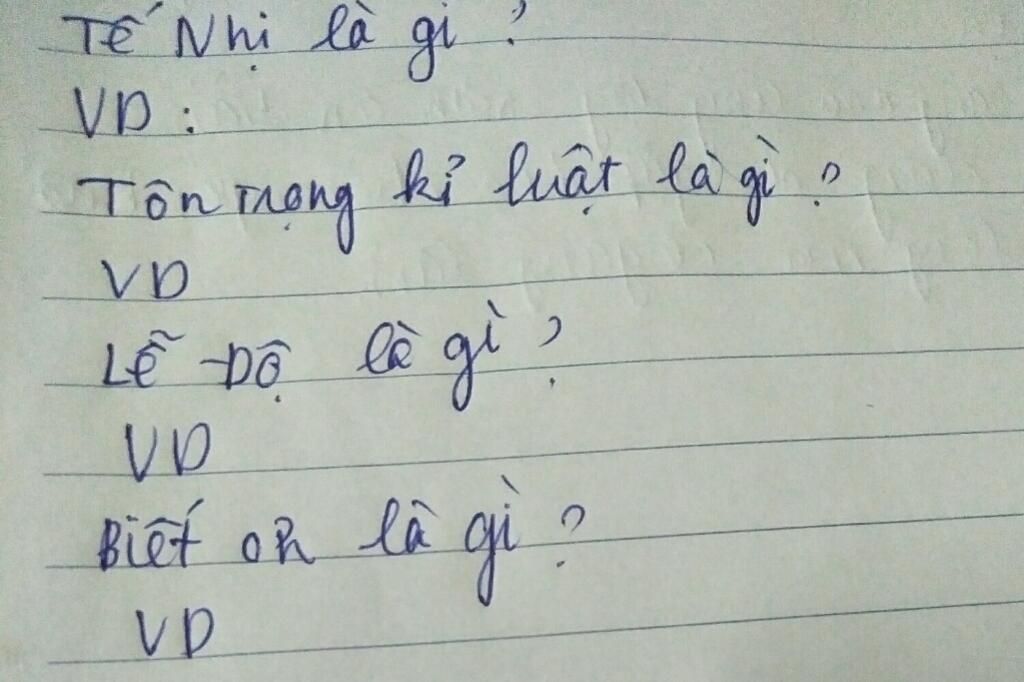 Tế Nhị là gì ?
VD :
Tôn trọng kỉ luật là gì ?
VD
Lễ Độ là gì ?
VD
Biết ơn là gì ?
VD